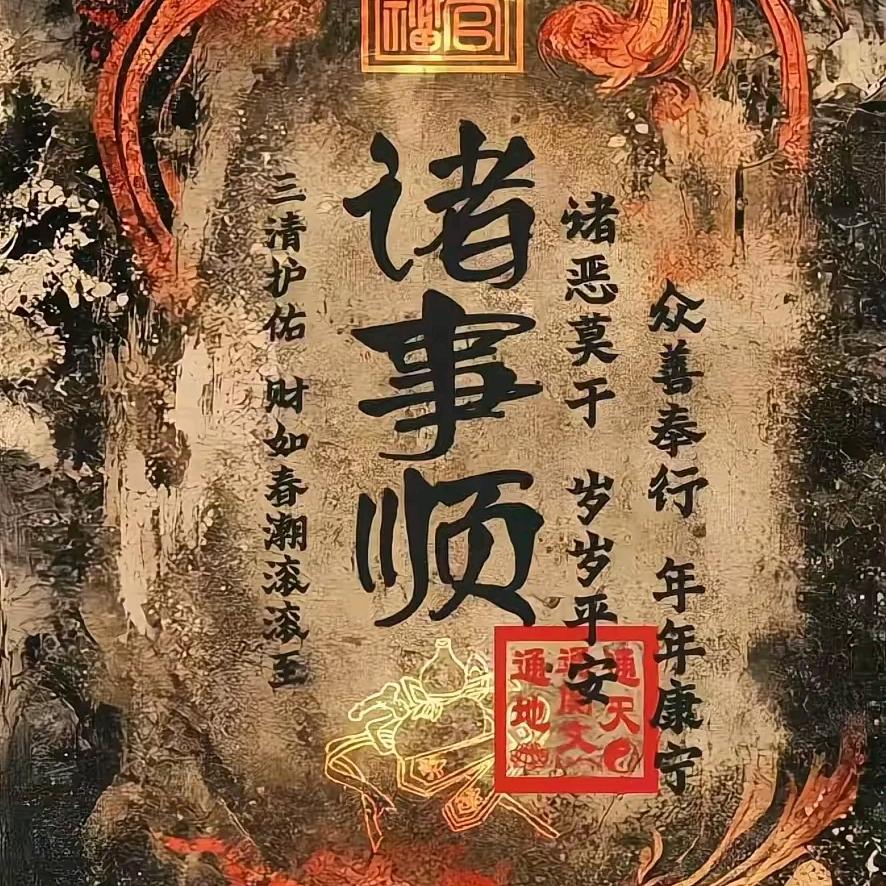 诸事顺
众善奉行 年年康宁
诸恶莫干 岁岁平安
三清护佑 财如春潮滚滚至
通天
通地